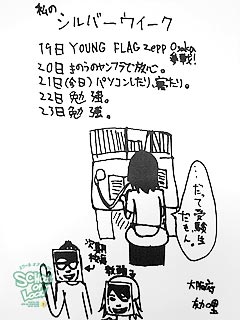 私の
シルバーウイーク
19日 YOUNG FLAG zepp Osaka
参戦!
20日 きのうのヤンフラで放心。
21日(今日)パソコンしたり、寝たり。
22日 勉強。
23日 勉強。
…だって受験生
だもん。
次期
校長
教頭
大阪府